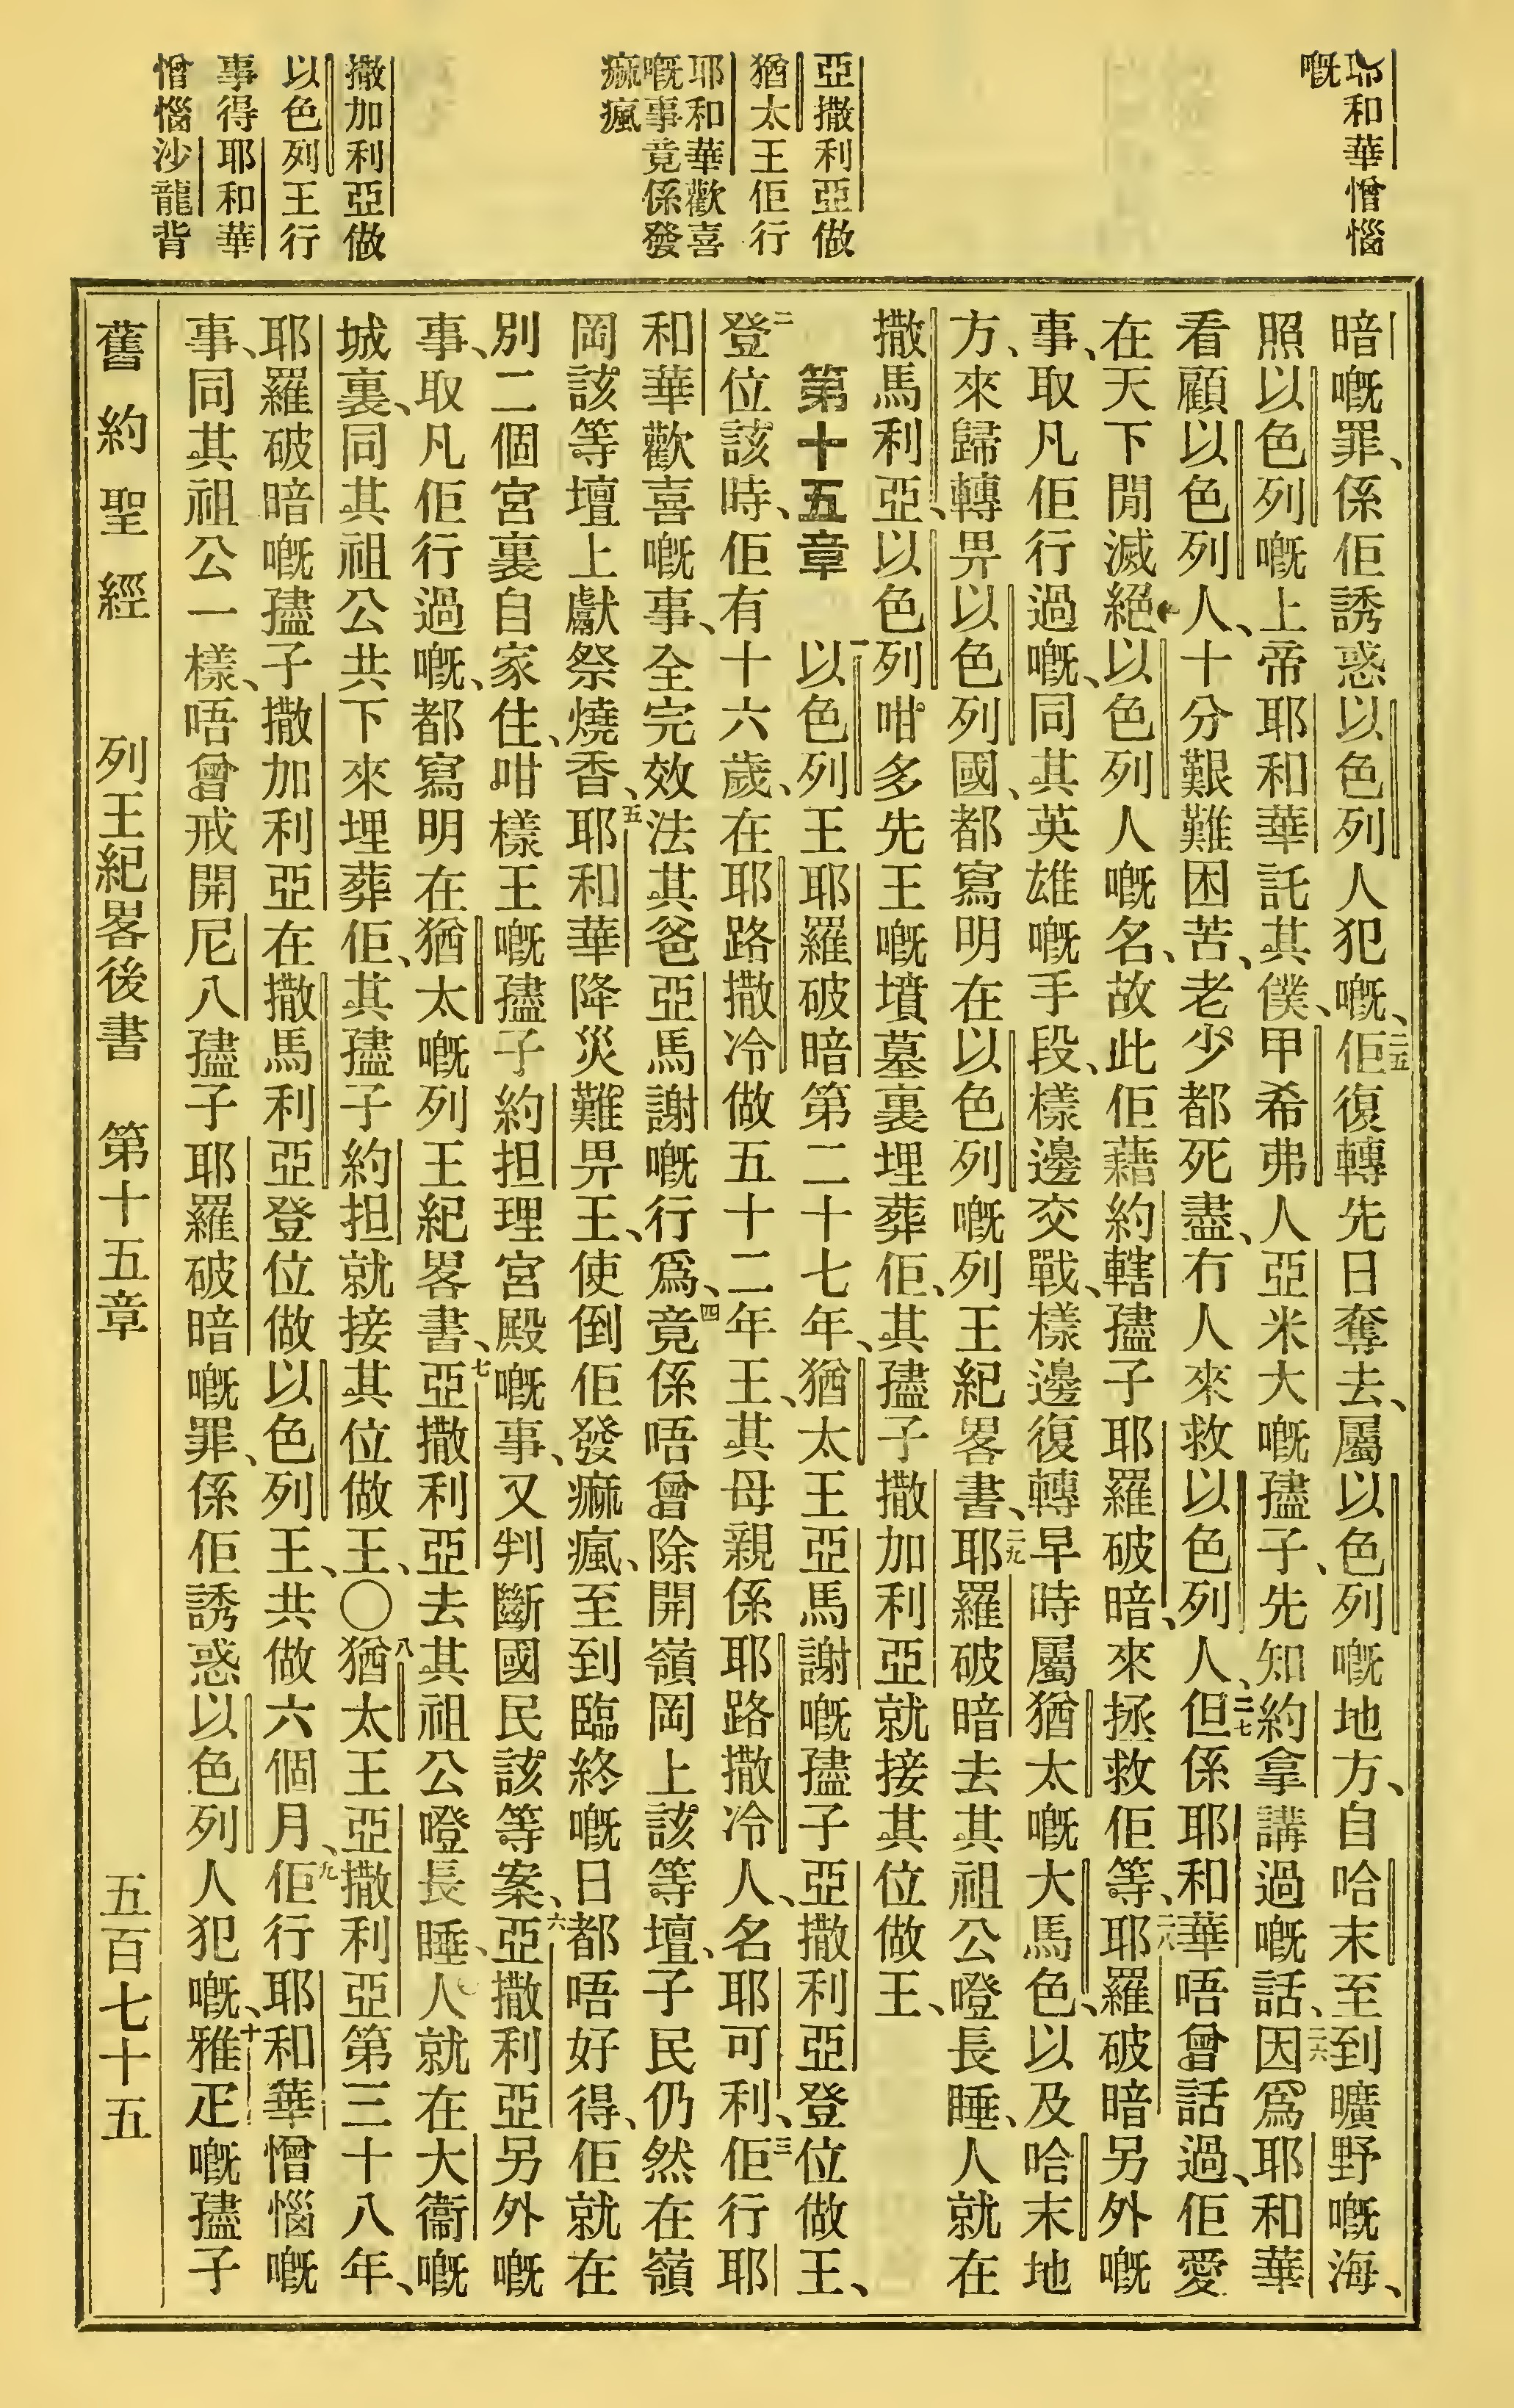 耶和華憎惱
嘅
亞撒利亞做
猶太王佢行
耶和華歡喜
嘅事竟係發
痲瘋
撒加利亞做
以色列王行
事得耶和華
憎惱沙龍背
暗嘅罪、係佢誘惑以色列人犯嘅、二五佢復轉先日奪去、屬以色列嘅地方、自哈末至到曠野嘅海、
照以色列嘅上帝耶和華託其僕、甲希弗人亞米大嘅𡥧子、先知約拿講過嘅話、二六因爲耶和華
看顧以色列人、十分艱難困苦、老少都死盡、冇人來救以色列人、二七但係耶和華唔曾話過、佢愛
在天下閒滅絕以色列人嘅名、故此佢藉約轄𡥧子耶羅破暗、來拯救佢等、二八耶羅破暗另外嘅
事、取凡佢行過嘅、同其英雄嘅手段、樣邊交戰、樣邊復轉早時屬猶太嘅大馬色、以及哈末地
方、來歸轉畀以色列國、都寫明在以色列嘅列王紀畧書、二九耶羅破暗去其祖公嶝長睡、人就在
撒馬利亞、以色列咁多先王嘅墳墓裏埋葬佢、其𡥧子撒加利亞就接其位做王、
第十五章 一以色列王耶羅破暗第二十七年、猶太王亞馬謝嘅𡥧子亞撒利亞登位做王、
二登位該時、佢有十六歲、在耶路撒冷做五十二年王、其母親係耶路撒冷人、名耶可利、三佢行耶
和華歡喜嘅事、全完效法其爸亞馬謝嘅行爲、四竟係唔曾除開嶺岡上該等壇、子民仍然在嶺
岡該等壇上獻祭燒香、五耶和華降災難畀王、使倒佢發痲瘋、至到臨終嘅日都唔好得、佢就在
別二個宮裏自家住、咁樣王嘅𡥧子約担理宮殿嘅事、又判斷國民該等案、六亞撒利亞另外嘅
事、取凡佢行過嘅、都寫明在猶太嘅列王紀畧書、七亞撒利亞去其祖公嶝長睡、人就在大衞嘅
城裏、同其祖公共下來埋葬佢、其𡥧子約担就接其位做王、〇八猶太王亞撒利亞第三十八年、
耶羅破暗嘅𡥧子撒加利亞在撒馬利亞登位做以色列王、共做六個月、九佢行耶和華憎惱嘅
事、同其祖公一樣、唔曾戒開尼八𡥧子耶羅破暗嘅罪、係佢誘惑以色列人犯嘅、十雅疋嘅𡥧子
舊約聖經 列王紀畧後書 第十五章 五百七十五